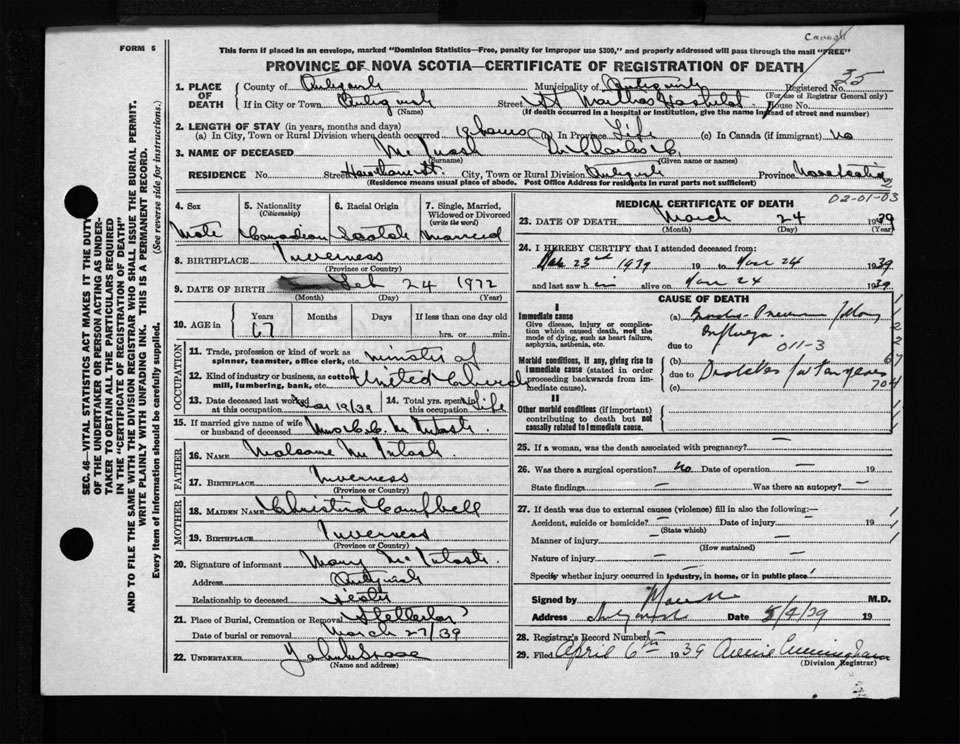 FORM 6
This form if placed in an envelope, marked "Dominion Statistics—Free, penalty for improper use $300," and properly addressed will pass through the mail "FREE"
PROVINCE OF NOVA SCOTIA—CERTIFICATE OF REGISTRATION OF DEATH
35
1. PLACE OF DEATH
County of Antigonish Municipality of Antigonish Registered No.
(For use of Registrar General only)
If in City or Town Antigonish Street St Marthas Hospital House No.
(Name) (If death occurred in a hospital or institution, give the name instead of street and number)
2. LENGTH OF STAY (in years, months and days)
(a) In City, Town or Rural Division where death occurred 18 hours (b) In Province Life (c) In Canada (if immigrant) no
3. NAME OF DECEASED McIntosh Charles C.
(Surname) (Given name or names)
RESIDENCE No. Street Hawthorne St. City, Town or Rural Division Antigonish Province Nova Scotia
(Residence means usual place of abode. Post Office Address for residents in rural parts not sufficient)
02-01-03
4. Sex Male
5. Nationality (Citizenship) Canadian
6. Racial Origin Scotch
7. Single, Married, Widowed or Divorced (write the word) Married
8. BIRTHPLACE Inverness
(Province or Country)
9. DATE OF BIRTH Feb 24 1872
(Month) (Day) (Year)
10. AGE in Years 67 Months Days If less than one day old
hrs. or min.
OCCUPATION
11. Trade, profession or kind of work as spinner, teamster, office clerk, etc. minister of
12. Kind of industry or business, as cotton mill, lumbering, bank, etc. United Church
13. Date deceased last worked at this occupation Mar 19/39
14. Total yrs. spent in this occupation Life
15. If married give name of wife or husband of deceased Mrs C. C. McIntosh
FATHER
16. NAME McIntosh
17. BIRTHPLACE Inverness
(Province or Country)
MOTHER
18. MAIDEN NAME Christina Campbell
19. BIRTHPLACE Inverness
(Province or Country)
20. Signature of informant Mary McIntosh
Address Antigonish
Relationship to deceased
21. Place of Burial, Cremation or Removal
Date of burial or removal March 27/39
22. UNDERTAKER
(Name and address)
MEDICAL CERTIFICATE OF DEATH
23. DATE OF DEATH March 24 1939
(Month) (Day) (Year)
24. I HEREBY CERTIFY that I attended deceased from:
23rd 1939 19 to Mar 24 1939
and last saw him alive on Mar 24 1939
CAUSE OF DEATH
I
Immediate cause
Give disease, injury or complication which caused death, not the mode of dying, such as heart failure, asphyxia, asthenia, etc.
(a) Broncho-Pneumonia following
Influenza
due to 011-3
Morbid conditions, if any, giving rise to immediate cause (stated in order proceeding backwards from immediate cause).
(b)
due to Diabetes for ten years
(c)
II
Other morbid conditions (if important) contributing to death but not causally related to immediate cause.
25. If a woman, was the death associated with pregnancy? —
26. Was there a surgical operation? no Date of operation — 19
State findings — Was there an autopsy? —
27. If death was due to external causes (violence) fill in also the following:—
Accident, suicide or homicide? — Date of injury — 19
(State which)
Manner of injury —
(How sustained)
Nature of injury —
Specify whether injury occurred in industry, in home, or in public place
Signed by M.D.
Address Antigonish Date 5/4/39 19
28. Registrar's Record Number
29. Filed April 6th 1939 Annie Cunningham
(Division Registrar)
SEC. 46—VITAL STATISTICS ACT MAKES IT THE DUTY OF THE UNDERTAKER OR PERSON ACTING AS UNDERTAKER TO OBTAIN ALL THE PARTICULARS REQUIRED IN THE "CERTIFICATE OF REGISTRATION OF DEATH"
AND TO FILE THE SAME WITH THE DIVISION REGISTRAR WHO SHALL ISSUE THE BURIAL PERMIT.
WRITE PLAINLY WITH UNFADING INK. THIS IS A PERMANENT RECORD.
Every item of information should be carefully supplied. (See reverse side for instructions.)